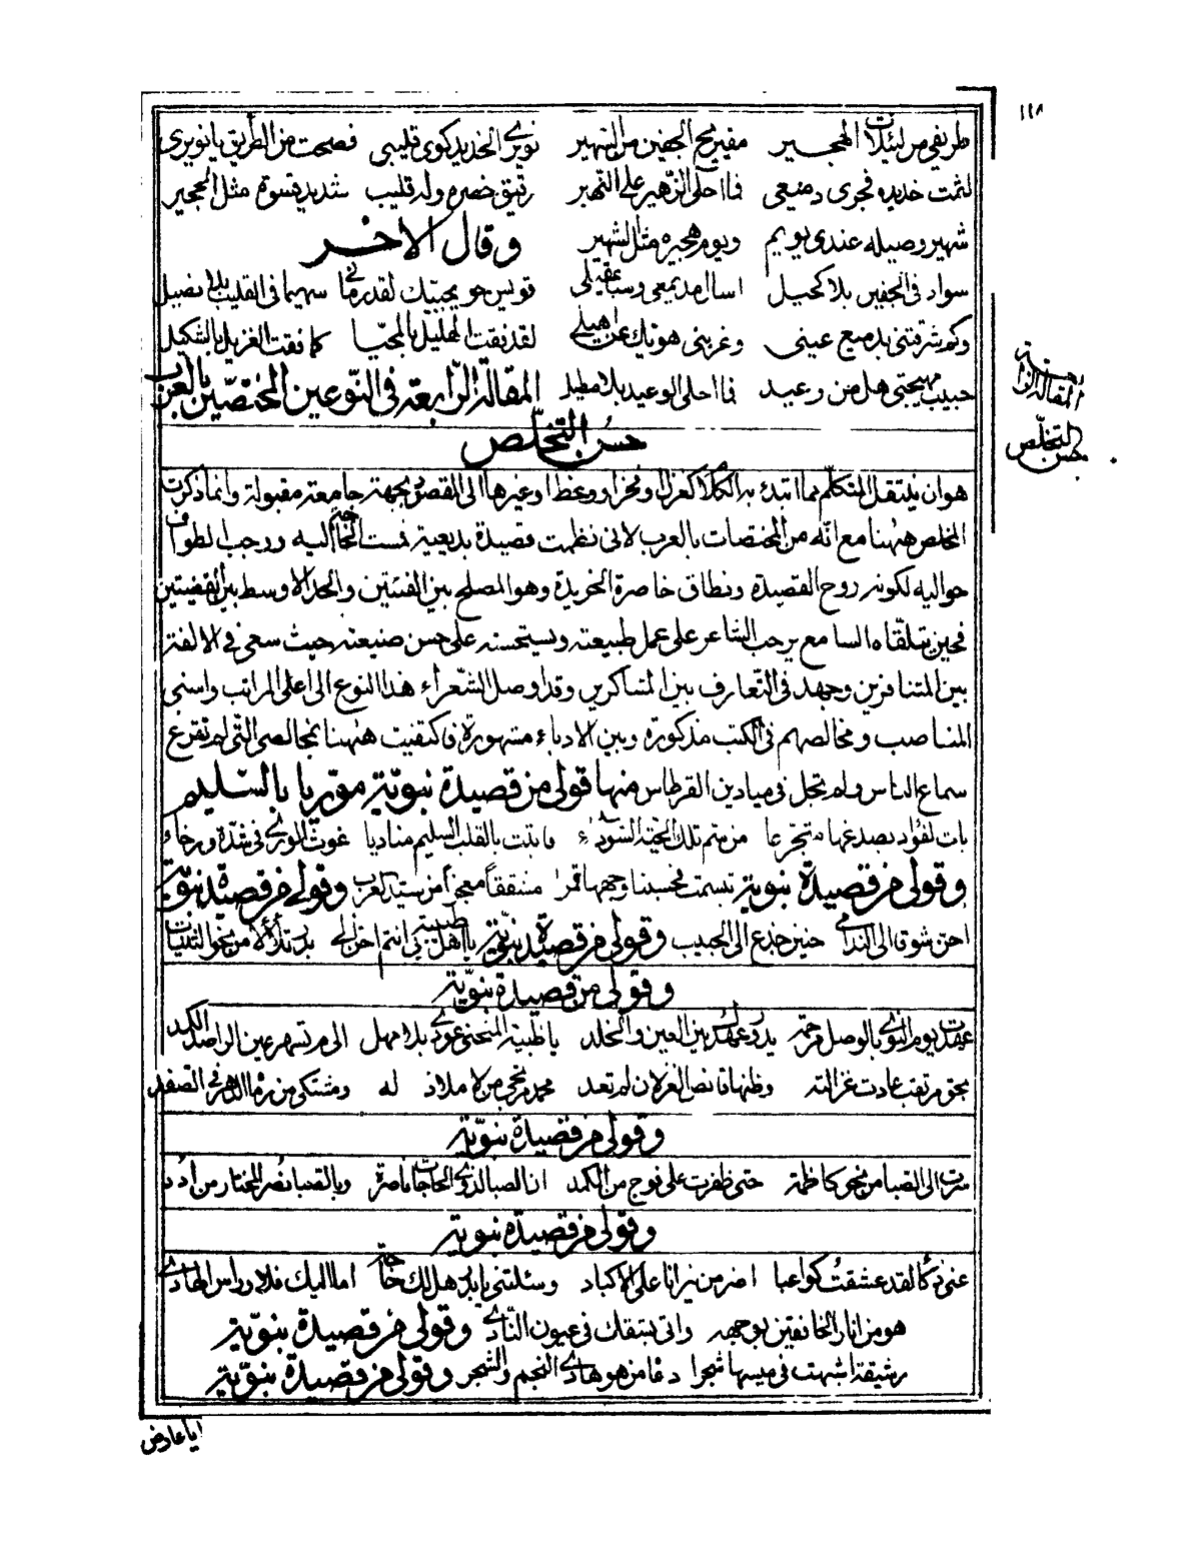 ١١٨
طريفي من لييلات الهجير مقيريح الجفين من السهير نويري الخديد كوى قليبي فصحت من الطريق يا نويري
لثمت خديده فجرى دميعي فما احلى الزهير على النهير رقيق خصره وله قليب شديد قسوة مثل الحجير
شهير وصيله عندي يويم ويوم هجيره مثل الشهير وقال الاخر
سواد في الجفين بلا كحيل اسال مديمعي وسبا عقيلي قويس حويجبيك لقد رماني سهيما في القليب بلا نصيل
وكم شرقتني بدميع عيني وغربني هويك عن اهيلي لقد فقت الهليل بالمحيا كما فقت الغزيل بالشكيل
حبيب مهيجتي هل من وعيد فما احلى الوعيد بلا مطيل المقالة الرابعة في النوعين المختصين بالعرب
المقالة الرابعة
حسن التخلص
حسن التخلص
هو ان ينتقل المتكلم مما ابتدئ به الكلام كغزل او فخر او وعظ او غيرها الى المقصود بجهة جامعة مقبولة وانما ذكرت
المخلص ههنا مع انه من المختصات بالعرب لاني نظمت قصيدة بديعية فمست الحاجة اليه ووجب الطواف
حواليه لكونه روح القصيدة ونطاق خاصرة الخريدة وهو المصلح بين الفئتين والحد الاوسط بين القضيتين
فحين يتلقاه السامع يرحب الشاعر على عمل طبيعته ويستحسنه على حسن صنيعته حيث سعى في الالفة
بين المتنافرين وجهد في التعارف بين المتناكرين وقد اوصل الشعراء هذا النوع الى اعلى المراتب واسنى
المناصب ومخالصهم في الكتب مذكورة وبين الادباء مشهورة فاكتفيت ههنا بمخالصي التي لم تقرع
سماع الناس ولم تجل في ميادين القرطاس منها قولي من قصيدة نبوية موريا بالسليم
بات لفؤاد بصدغها متجرعا من سم تلك الحية السوداء فابتت بالقلب السليم مناديا غوث الورى في شدة ورخاء
وقولي من قصيدة نبوية تبسمت فحسبنا وجهها قمرا مشققا معجزا من سيد العرب وقولي من قصيدة نبوية
احن شوقا الى الندامى حنين جذع الى الحبيب وقولي من قصيدة نبوية يا اهل طيبة انتم اخرالي بدر تلألأ من نحو الثنيات
وقولي من قصيدة نبوية
عقدت يوم النوى بالوصل مرحمة يدوم عهدك بين العين والخلد يا ظبية المنحنى عودي بلا مهل الى م تسهر عين الراصد الكمد
بحق مرتقب عادت غزالته وظنها قانص الغزلان لم تعد محمد مرتجى من لا ملاذ له ومشتكى من رماه الدهر في الصفد
وقولي من قصيدة نبوية
سرت الى الصبا من نحو كاظمة حتى ظفرت على فوج من الكمد ان الصبا لذوي الحاجات ناصرة وبالصبا نصر المختار من ادد
وقولي من قصيدة نبوية
لقد عشقت كواعبا اضر من نيرانا على الاكباد وسئلتني يا بدر هل لك حاجة اما اليك فلا وراس الهادي
هو من انار الخافقين بوجهه في عيون النادي وقولي من قصيدة نبوية
رشيقة اشبهت في ميسها شجرا دعا من هو هادي النجم والشجر وقولي من قصيدة نبوية
ايا عارض